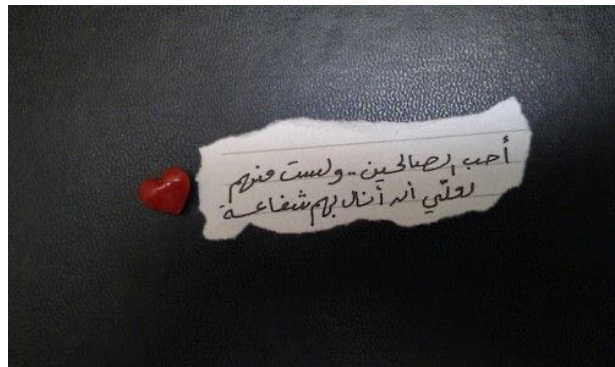 أحب الصالحين.. ولست منهم
لعلّي أن أنال بهم شفاعة